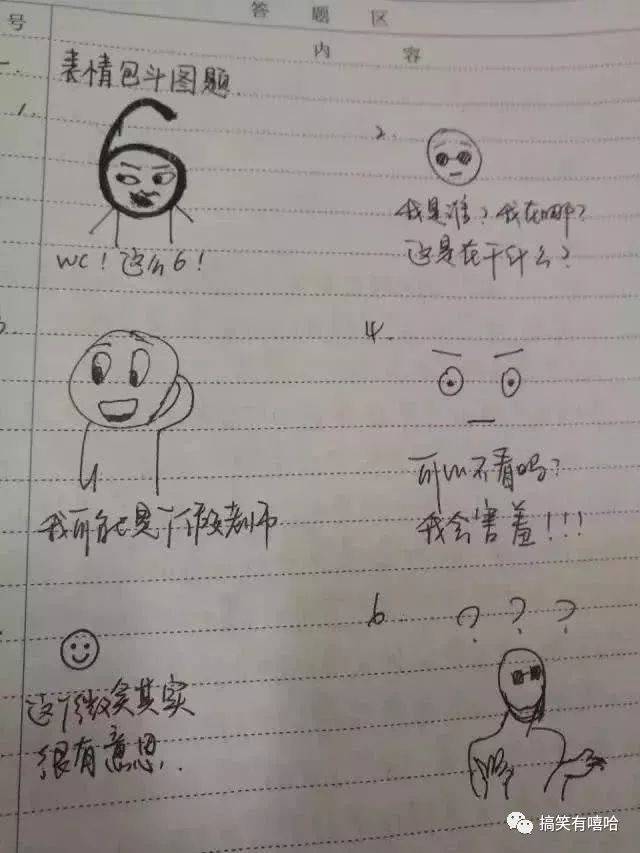 答 题 区
号 内 容
一. 表情包斗图题.
1.
WC！这么6！
2.
我是谁？我在哪？
这是在干什么？
3
我可能是个假老师
4.
可以不看吗？
我会害羞！！！
这个微笑其实
很有意思.
6. ? ? ?
搞笑有嘻哈